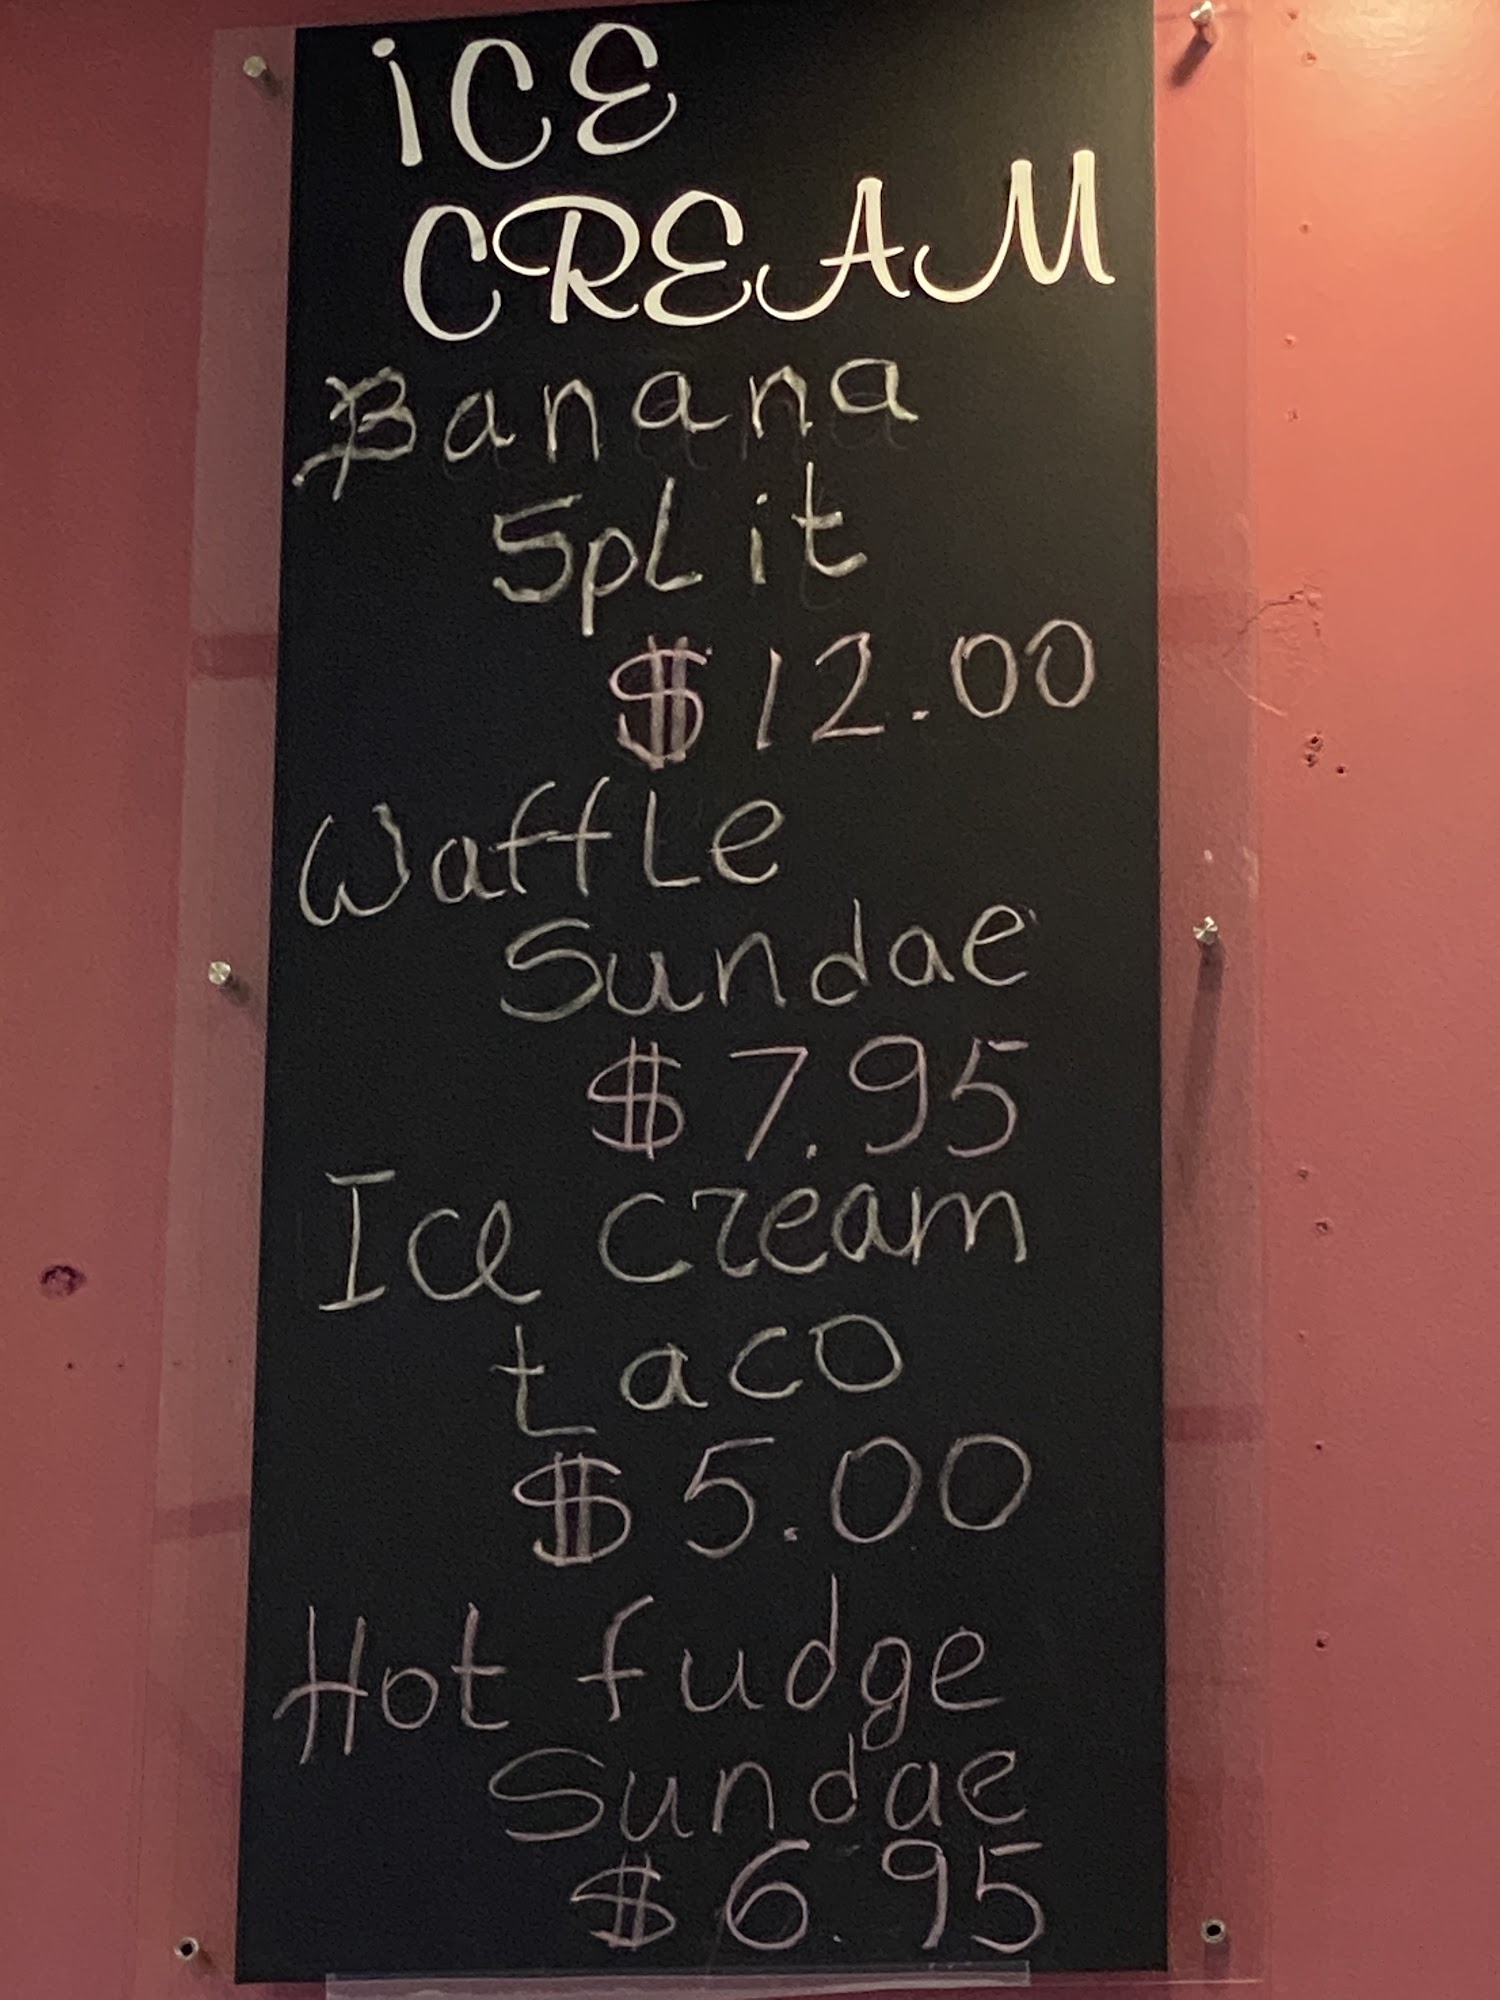 iCE
CREAM
Banana
SpLit
$12.00
WaffLe
Sundae
$7.95
Ice cream
taco
$5.00
Hot fudge
Sundae
$6.95